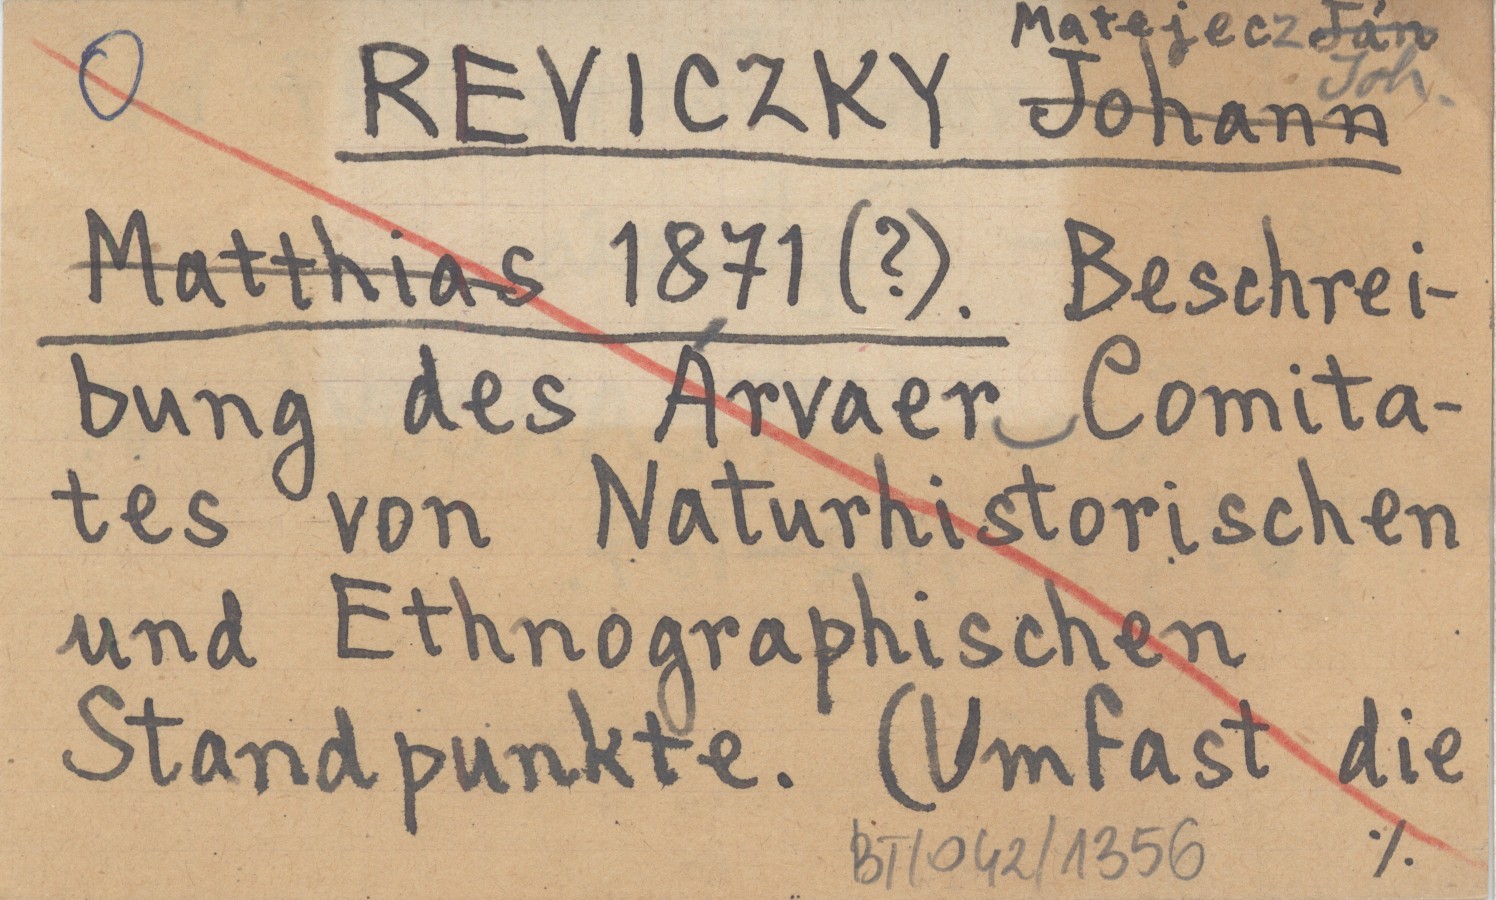 O
Matejecz Ján
Joh.
REVICZKY Johann
Matthias 1871(?). Beschrei-
bung des Árvaer Comita-
tes von Naturhistorischen
und Ethnographischen
Standpunkte. (Umfast die
BT/042/1356
./.